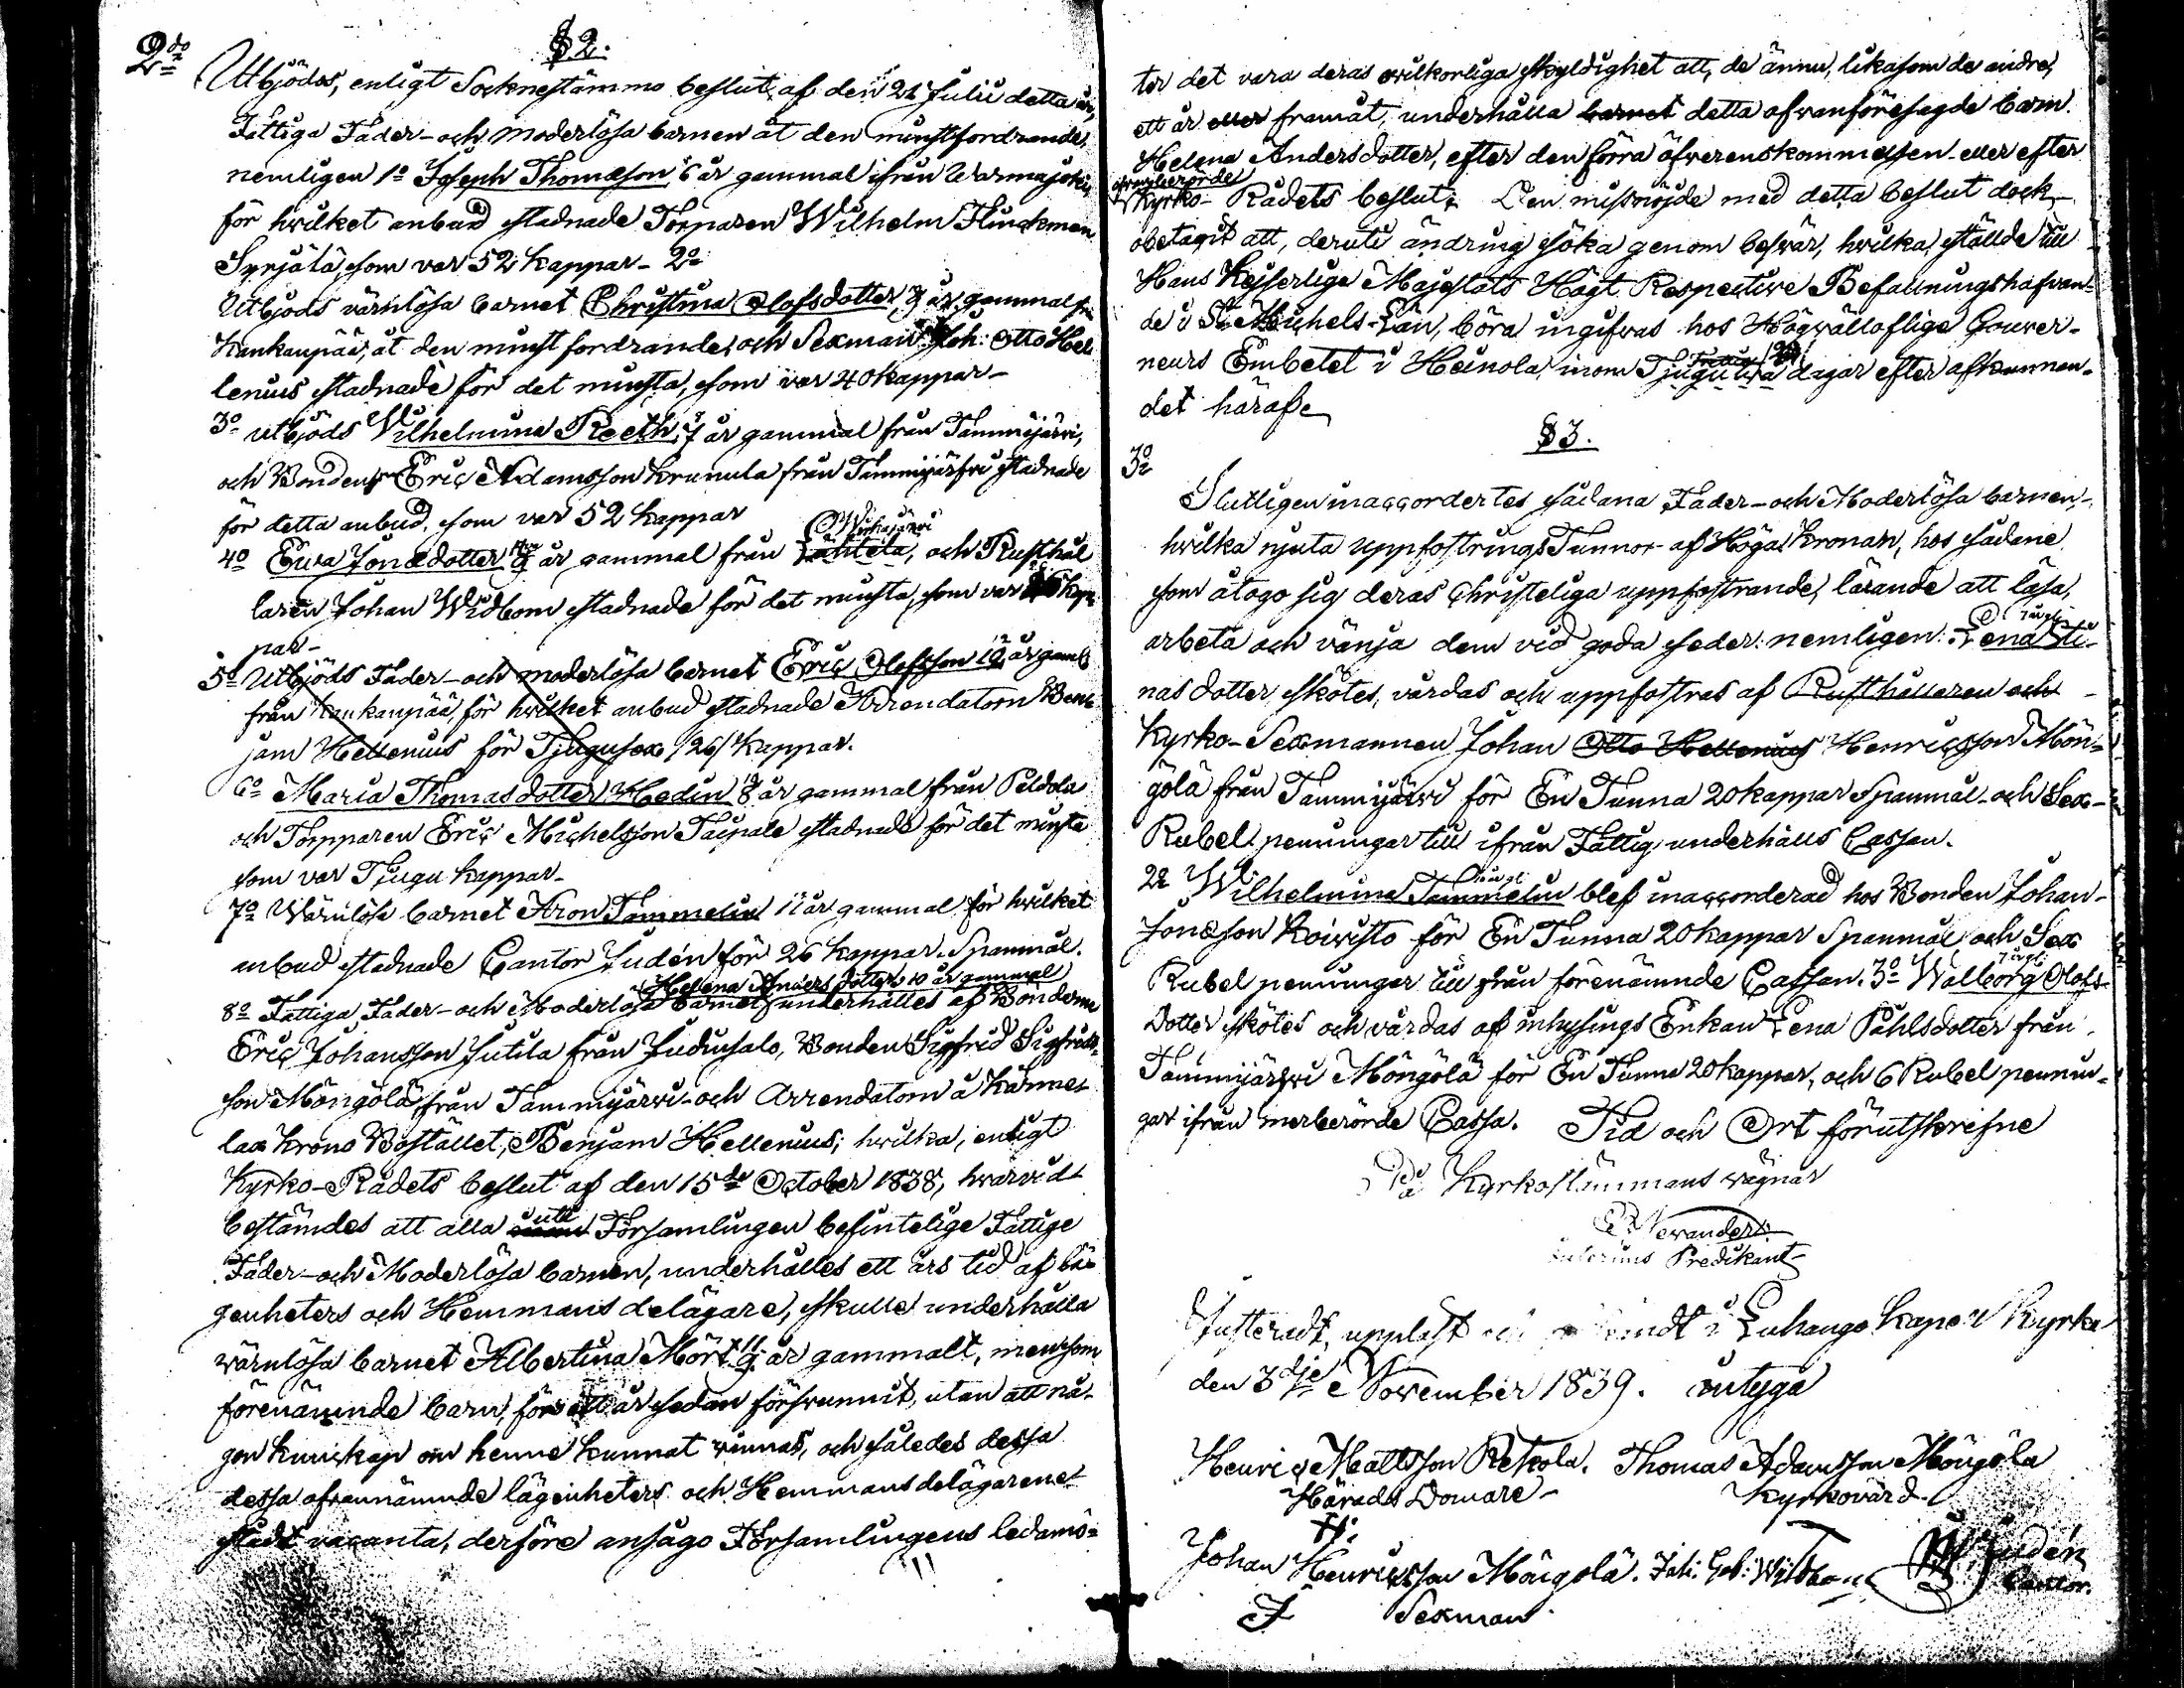 2do
§ 2.
Utbjödos, enligt Socknestämmo beslut, af den 21 Julii detta år,
Fattiga Fader- och moderlösa barnen åt den minstfordrande,
nemligen 1o Joseph Thomasson, 6 år gammal ifrån
för hvilket anbud stadnade Torparen Wilhelm Fluckman
Syrjälä, som var 52 kappar - 2o
Utbjöds värnlösa barnet Christina Olofsdotter, år gammal fr.
Kankanpää, åt den minst fordrande, och Sexman Joh: Otto Hel-
lenius stadnade för det minsta, som var 40 kappar -
3o utbjöds Wilhelmina Reeth, 7 år gammal från Tammijärvi,
och Bonden Eric Adamsson Krunula från Tammijärfvi stadnade
för detta anbud, som var 52 kappar
Wihajärvi
4o Ewa Jonædotter år gammal från Lahtela, och Rusthål
laren Johan Widbom stadnade för det minsta, som var kap-
par -
5o Utbjöds Fader- och moderlösa barnet Eric Olofsson 12 år gaml
från Kankanpää, för hvilket anbud stadnade Arrendatorn Ben-
jam Hellenius för Tjugusex /26/ Kappar.
6o Maria Thomasdotter Hedin år gammal från Peldola
och Torpparen Eric Michelsson Taipale stadnade för det minsta
som var Tjugu kappar -
7o Wärnlösa barnet Aron Tammelin 11 år gammal för hvilket
anbud stadnade Cantor Judén för 26 kappar Spanmål.
Helena Anders dotter 10 år gammal
8o Fattiga Fader- och Moderlösa barnet underhålles af Bönderne
Eric Johansson Jutila från Judinsalo, Bonden Sigfrid Sigfrids-
son Möngölä, från Tammijärvi - och Arrendatorn å Kärne-
lax Krono Bostället, Benjam Hellenius; hvilka, enligt
Kyrko-Rådets beslut af den 15de October 1838, hvarvid
bestämdes att alla uti Församlingen befintelige Fattige
Fader- och Moderlösa barnen, underhålles ett års tid af lä-
genheters och Hemmans delägare, skulle underhålla
värnlösa barnet Albertina Mört 11 år gammalt, men som
förenämnde barn, för ett år sedan försvunnit, utan att nå-
gon kunskap om henne kunnat vinnas, och således dessa
dessa ofvannämnde lägenheters och Hemmansdelägarene
städt vacanta, derföre ansågo Församlingens ledamö-
ter det vara deras ovilkorliga skyldighet att, de ännu, likasom de andre,
ett år eller framåt, underhålla barnet detta ofvanföresagde barn
Helena Andersdotter, efter den förra öfverenskommelsen eller efter
ofvanberörde
Kyrko-Rådets beslut; Den missnöjde med detta beslut dock
obetagit att, deruti ändring söka genom besvär, hvilka, ställde till
Hans Kejserlige Majestäts Högt Respective Befallningshafvan-
de i St Michels Län, böra ingifvas hos Högvälloflige Gouver-
neurs Embetet i Heinola, inom dagar efter afkunnan-
det häraf.
§ 3.
3o
Slutligen inaccordertes sådana Fader- och Moderlösa barnen,
hvilka njuta uppfostrings Tunnor af Höga Kronan, hos sådane
som åtogo sig deras Christeliga uppfostrande, lärande att läsa,
arbeta och vänja dem vid goda seder: nemligen: Lena Sti-
nas dotter skötes, vårdas och uppfostras af Rusthållaren och
Kyrko-Sexmannen Johan Otto Hellenius Henricsson Mön-
gölä från Tammijärvi för En Tunna 20 kappar Spanmål - och Sex -
Rubel penningar till ifrån Fattig underhålls Cassan.
2o Wilhelmina Tammelin blef inaccorderad hos Bonden Johan
Jonæson Koivisto för En Tunna 20 kappar Spanmål och Sex
Rubel penningar till från förenämnde Cassan. 3o Walborg Olofs-
Dotter skötes och vårdas af inhysings Enkan Lena Påhlsdotter från
Tammijärvi Möngölä för En Tunna 20 kappar, och 6 Rubel pennin-
gar ifrån merberörde Cassa. Tid och Ort förutskrefne
På Kyrkostämmans vägnar
Predikant
Justeradt, uppläst och i Luhango Kapell Kyrka
den 3dje November 1839. intyga
Henric Mattsson Rekola. Thomas Adamsson Möngölä
Härads Domare - Kyrkovärd.
Johan Henricsson Möngölä. Joh: Gab: Widbom Judén
Sexman Cantor.